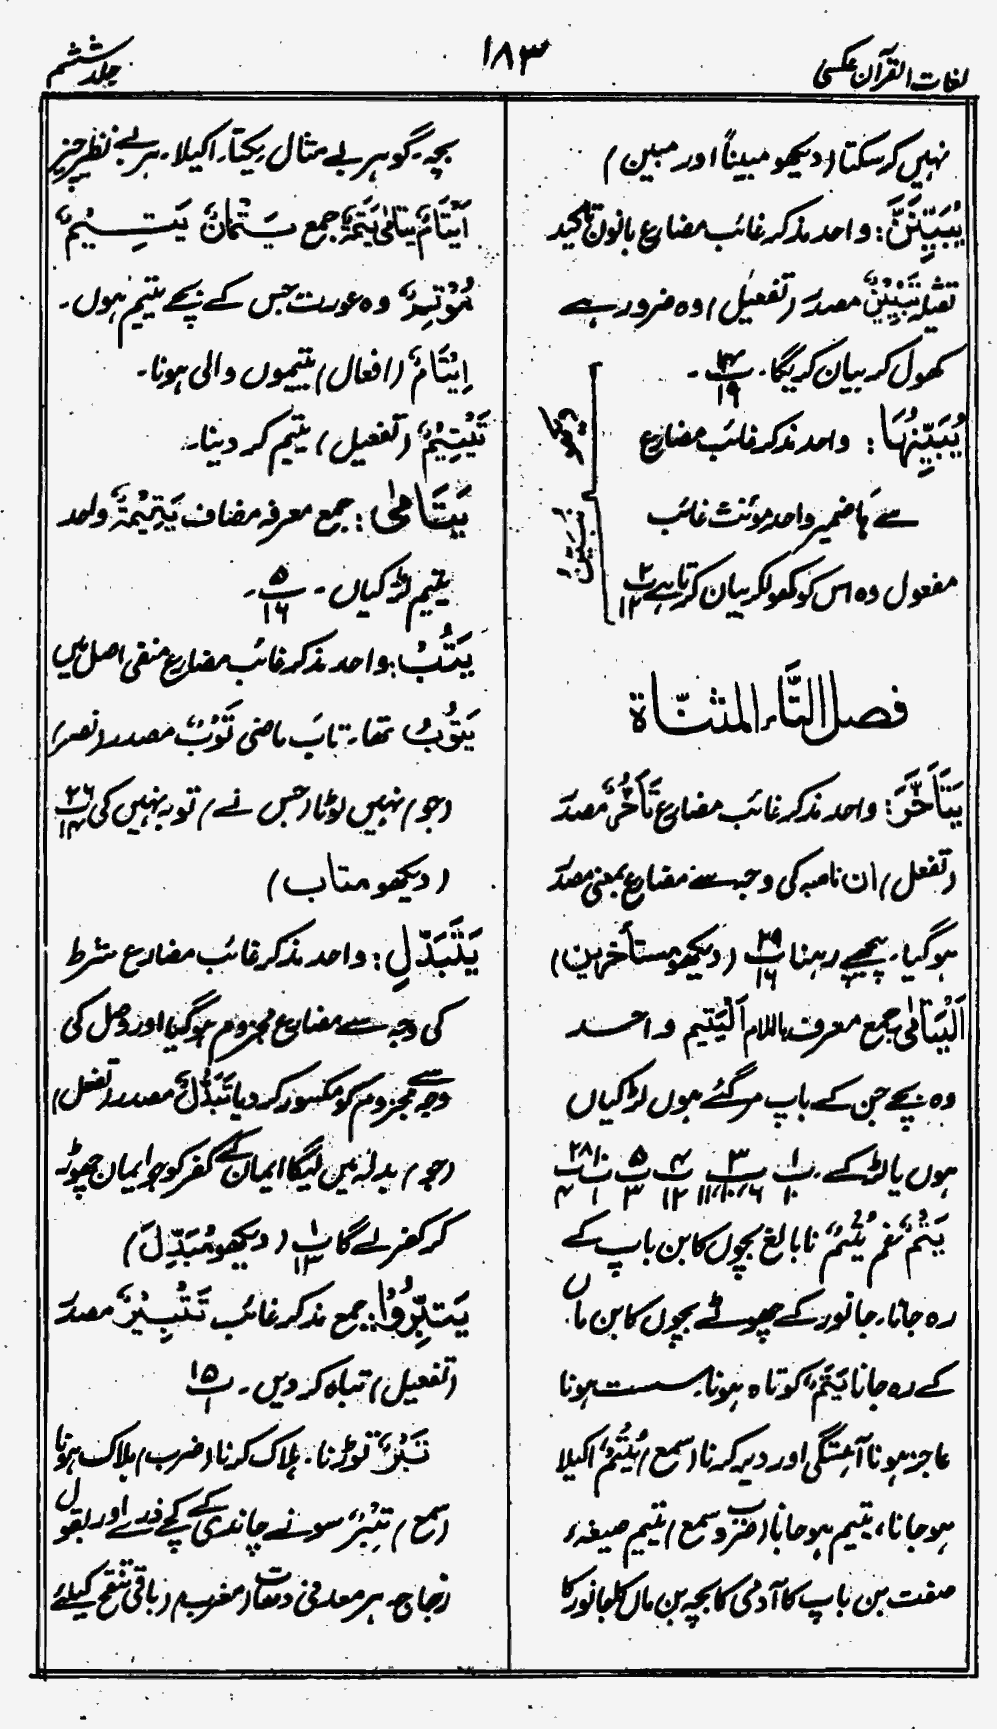 لغات القرآن عکسی
۱۸۳
جلد ششم
نہیں کر سکتا (دیکھو مبیناً اور مبین)
یُبَیِّنَنَّ: واحد مذکر غائب مضارع بانون تاکید
ثقیلہ تَبْیِیْنٌ مصدر (تفعیل) وہ ضرور ہے
کھول کر بیان کریگا۔ ۱۴/۱۹۔
یُبَیِّنُهَا: واحد مذکر غائب مضارع
سے ہَا ضمیر واحد مونث غائب
مفعول وہ اس کو کھولکر بیان کرتا ہے ۲/۱۲
دیکھو
یُبَیِّنُ
فصل التّاء المثنّاة
یَتَأَخَّرَ: واحد مذکر غائب مضارع تَأَخُّرٌ مصدر
(تفعل) ان ناصبہ کی وجہ سے مضارع بمعنی مصدر
ہو گیا۔ پیچھے رہنا ۲۹/۱۶ (دیکھو مستأخرین)
اَلْیَتٰمٰی جمع معرف باللام اَلْیَتِیم واحد
وہ بچے جن کے باپ مر گئے ہوں لڑکیاں
ہوں یا لڑکے۔ ۱/۱۰ ۳/۱۱،۱۰،۶ ۴/۱۲ ۵/۳ ۱۰/۱ ۲۸/۴
یَتْمٌ نفم یُتْمٌ نابالغ بچوں کا بن باپ کے
رہ جانا۔ جانور کے چھوٹے بچوں کا بن ماں
کے رہ جانا یَتَمٌ کوتاہ ہونا۔ سست ہونا
عاجز ہونا آہستگی اور دیر کرنا (سمع) یُتْمٌ اکیلا
ہو جانا، یتیم ہو جانا (ضرب و سمع) یتیم صیغہء
صفت بن باپ کا آدمی کا بچہ بن ماں کا جانور کا
بچہ۔ گوہر بے مثال یکتا۔ اکیلا۔ ہر بے نظیر چیز
اَیْتَامٌ یتامٰی یَتَمَةٌ جمع یَتْمَانٌ یَتِیْمٌ
مُوْتِمٌ وہ عورت جس کے بچے یتیم ہوں۔
اِیْتَامٌ (افعال) یتیموں والی ہونا۔
تَیْتِیْمٌ (تفعیل) یتیم کر دینا۔
یَتَامٰی: جمع معرفہ مضاف یَتِیْمَةٌ واحد
یتیم لڑکیاں۔ ۵/۱۶۔
یَتُبْ: واحد مذکر غائب مضارع منفی اصل میں
یَتُوْبُ تھا۔ تابَ ماضی تَوْبٌ مصدر (نصر)
(جو) نہیں لوٹا (جس نے) توبہ نہیں کی ۲۶/۱۴
(دیکھو متاب)
یَتَبَدَّلِ: واحد مذکر غائب مضارع شرط
کی وجہ سے مضارع مجزوم ہو گیا اور وصل کی
وجہ سے مجزوم کو مکسور کر دیا تَبَدُّلٌ مصدر (تفعل)
(جو) بدلہ میں لیگا ایمان کے کفر کو جو ایمان چھوڑ
کر کفر لے گا ۱/۱۳ (دیکھو مُبَدِّلَ)
یَتبِّرُوْا: جمع مذکر غائب تَتْبِیْرٌ مصدر
(تفعیل) تباہ کر دیں۔ ۱۵/۱
تَبْرٌ توڑنا۔ ہلاک کرنا (ضرب) ہلاک ہونا
(سمع) تِبْرٌ سونے چاندی کے کچے ذرے اور بقول
زجاج ہر معدنی دھات (مغرب) (باقی تنقیح کیلئے